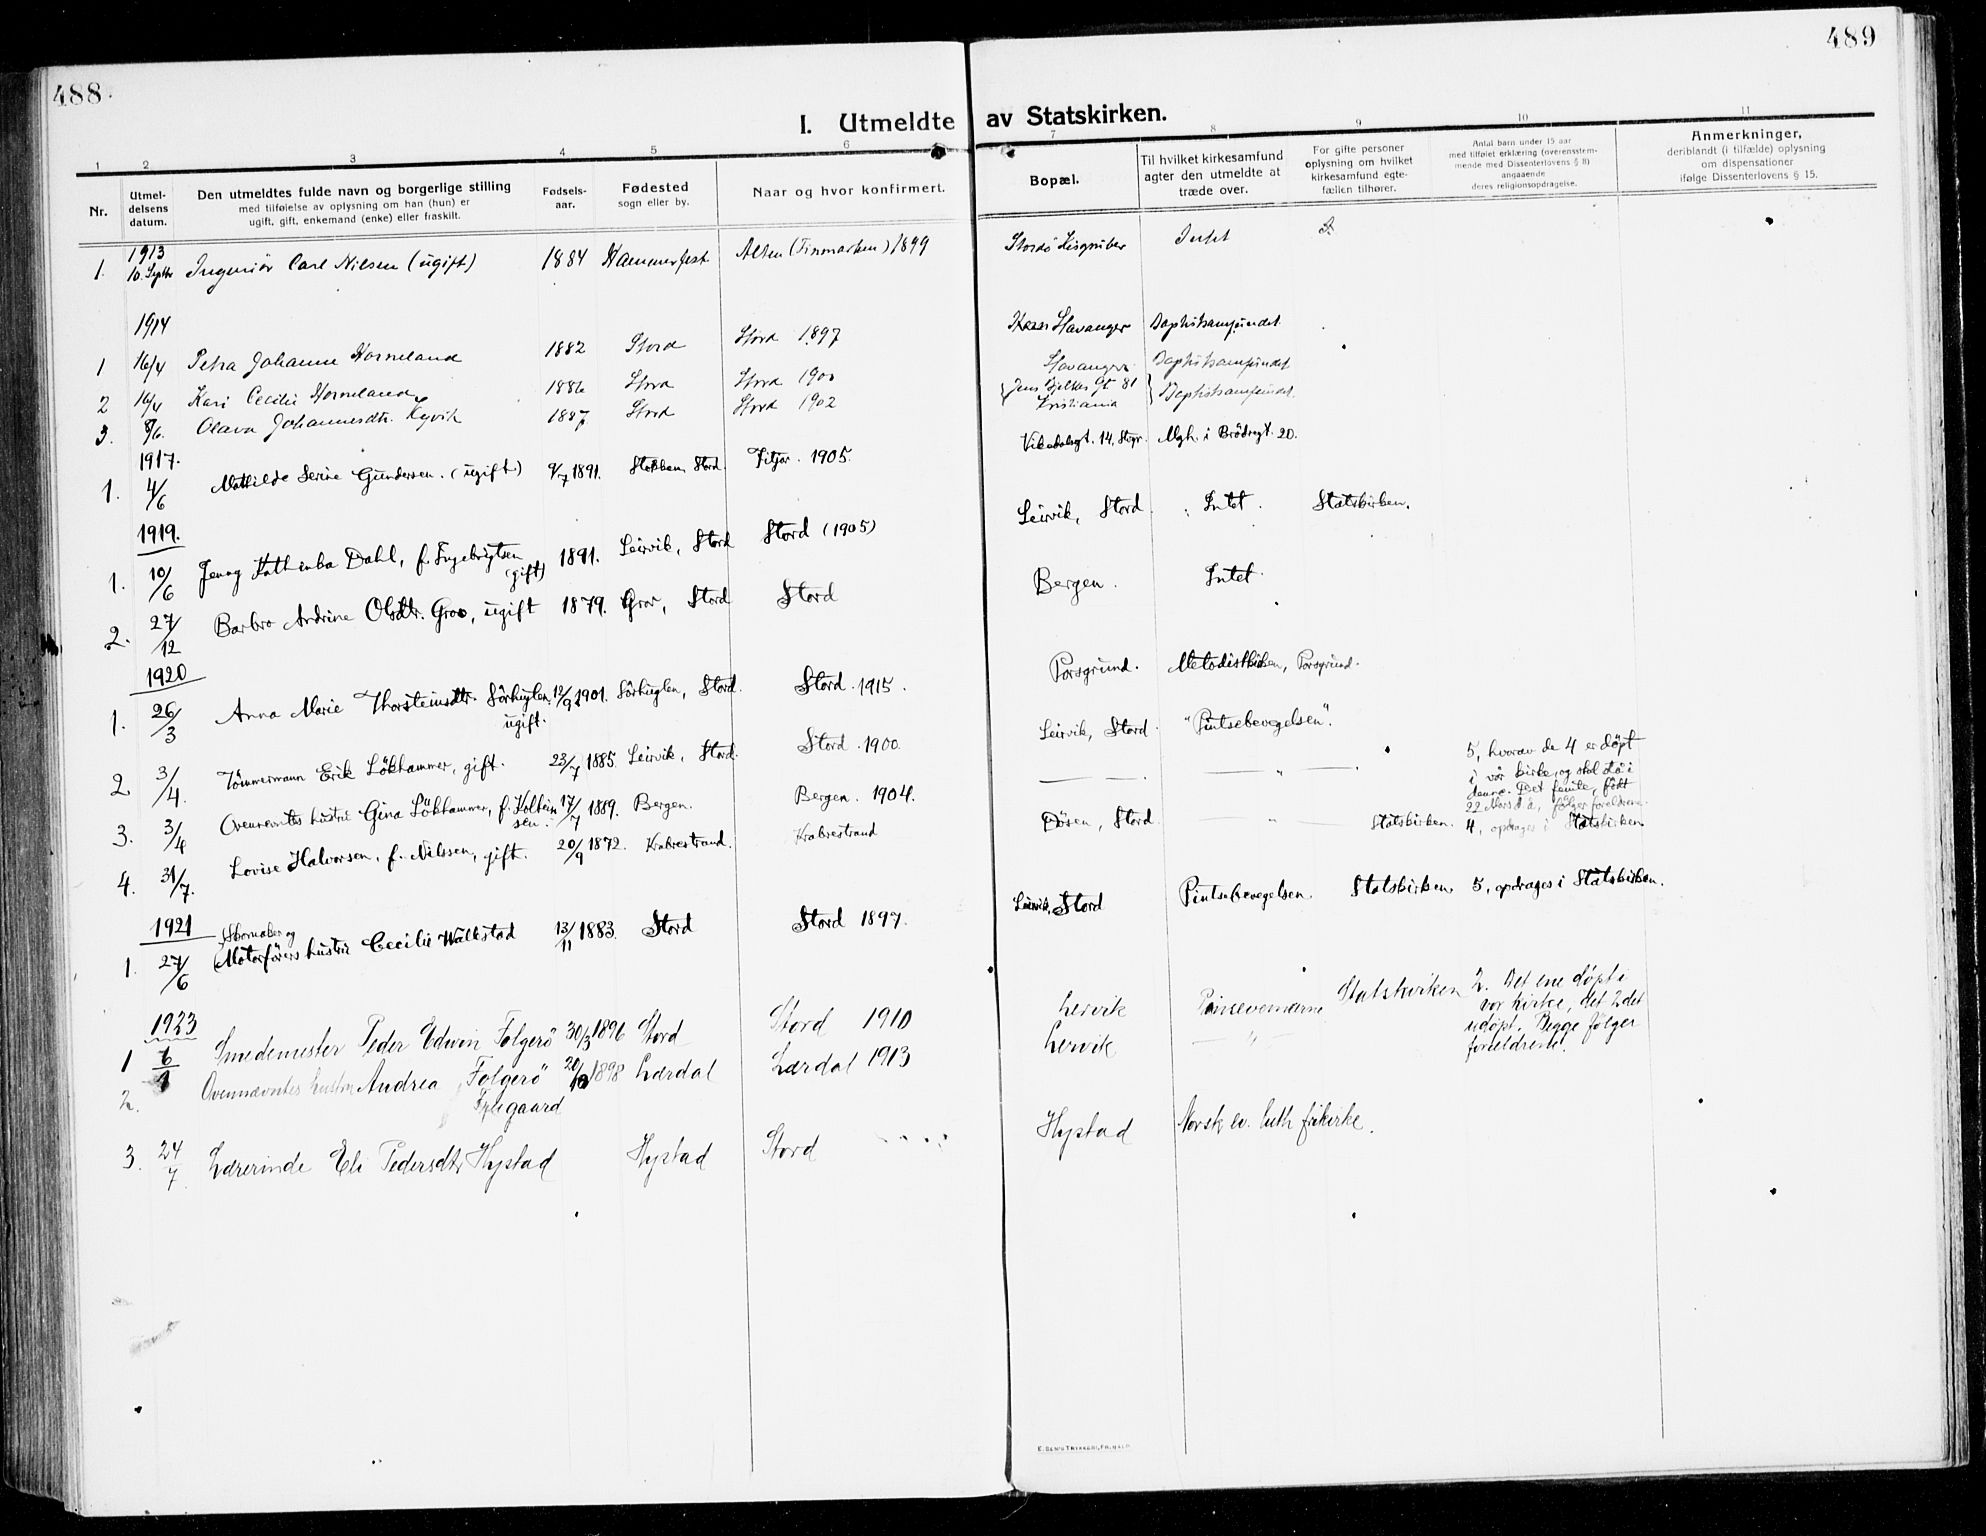 488.
489
I. Utmeldte av Statskirken.
1 2 3 4 5 6 7 8 9 10 11
Nr.
Utmel-
delsens
datum.
Den utmeldtes fulde navn og borgerlige stilling
med tilføielse av oplysning om han (hun) er
ugift, gift, enkemand (enke) eller fraskilt.
Fødsels-
aar.
Fødested
sogn eller by.
Naar og hvor konfirmert.
Bopæl.
Til hvilket kirkesamfund
agter den utmeldte at
træde over.
For gifte personer
oplysning om hvilket
kirkesamfund egte-
fællen tilhører.
Antal barn under 15 aar
med tilføiet erklæring (overensstem-
mende med Dissenterlovens § 8)
angaaende
deres religionsopdragelse.
Anmerkninger,
deriblandt (i tilfælde) oplysning
om dispensationer
ifølge Dissenterlovens § 15.
1913
1. 10. Septbr Ingeniör Carl Nilsen (ugift) 1884 Hammerfest Alten (Finmarken) 1899 Stordö Kisgruber Intet
1914
1 16/4 Petra Johanne Horneland 1882 Stord Stord 1897 Stavanger Baptistsamfundet.
2 16/4 Kari Cecilie Horneland 1886 Stord Stord 1900 Stavanger Baptistsamfundet
3. 8/6. Olava Johannesdtr. Kyvik 1887 Stord Stord 1902 Jens Bjelkes Gt 81 Kristiania Baptistsamfundet.
1917.
1. 4/6 Mathilde Serine Gundersen. (ugift) 9/7 1891. Stokken, Stord. Fitjar. 1905. Vikedalsgt. 14, Stvgr. Mgh. i Brödregt. 20.
1919.
1. 10/6 Jenny Kathinka Dahl, f. Ingebrigtsen (gift) 1891. Leirvik, Stord Stord (1905) Leirvik, Stord. Intet. Statskirken.
2. 27/12 Barbro Andrine Olsdtr. Grov, ugift 1879. Grov, Stord Stord Bergen. Intet.
1920
1. 26/3 Anna Marie Thorsteinsdtr. Sörhuglen, ugift. 12/9 1901. Sörhuglen, Stord. Stord. 1915. Porsgrund. Metodistkirken, Porsgrund.
2 3/4. Tömmermann Erik Lökhammer, gift. 23/7 1885. Leirvik, Stord. Stord. 1900. Leirvik, Stord. "Pintsebevegelsen".
5, hvorav de 4 er döpt
i vår kirke, og skal stå i
denne. Det femte, født
22 Mars d. å., følger foreldrene.
3. 3/4 Ovennevntes hustru Gina Lökhammer, f. 17/7 1889. Bergen. Bergen. 1904. — " —
4. 31/7. Lovise Halvorsen, f. Nilssen, gift. 20/9 1872. Krabrestrand. Krabrestrand Døsen, Stord. — " — Statskirken. 4, opdrages i Statskirken
1921
1. 27/6 Skomaker og Motorförers hustru Cecilie Wallestad 13/11 1883. Stord Stord 1897. Leirvik, Stord Pintsebevegelsen. Statskirken. 5, opdrages i Statskirken.
1923
1 6/1 Smedemester Peder Edwin Folgerö 30/3 1896 Stord Stord 1910 Lervik Pinsevennerne Statskirken 2. Det ene døpt i
vor kirke, det 2det
udøpt. Begge følger
foreldrene.
2. Ovennævntes hustru Andrea Folgerö 20/10 1898 Lærdal Lærdal 1913 Lervik — " —
3. 24/7 Lærerinde Eli Pedersdtr Hystad Hystad Stord Hystad Norsk ev. luth frikirke.